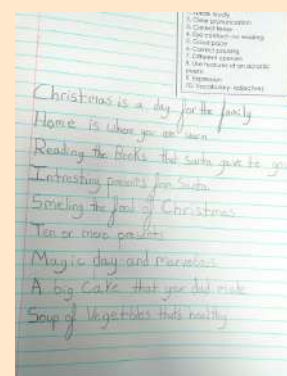 1. Speak loudly
2. Clear pronunciation
3. Correct tense
4. Eye contact- no reading
5. Good pace
6. Correct pausing
7. Different openers
8. Use features of an acrostic poem
9. Expression
10. Vocabulary- adjectives
Christmas is a day for the family
Home is where you are warm
Reading the Books that santa gave to you
Intresting presents from Santa
Smeling the food of Christmas
Ten or more presents
Magic day and marvelous
A big cake that your dad made
Soup of Vegetbles thats healthy